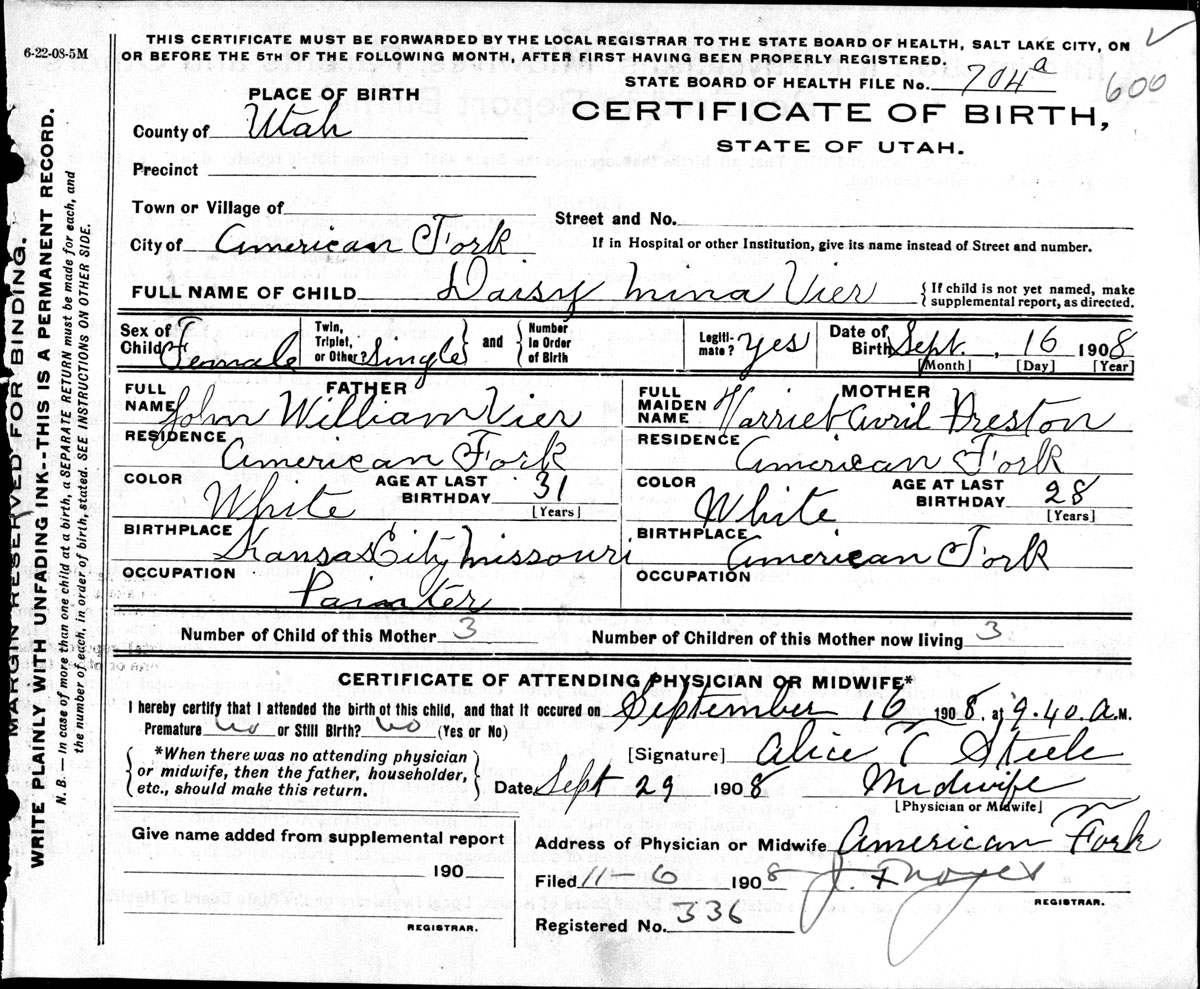 6-22-08-5M
THIS CERTIFICATE MUST BE FORWARDED BY THE LOCAL REGISTRAR TO THE STATE BOARD OF HEALTH, SALT LAKE CITY, ON
OR BEFORE THE 5TH OF THE FOLLOWING MONTH, AFTER FIRST HAVING BEEN PROPERLY REGISTERED.
STATE BOARD OF HEALTH FILE No. 704a 600
PLACE OF BIRTH
CERTIFICATE OF BIRTH,
STATE OF UTAH.
County of Utah
Precinct
Town or Village of
Street and No.
City of American Fork
If in Hospital or other Institution, give its name instead of Street and number.
FULL NAME OF CHILD Daisy Mina Vier {If child is not yet named, make
supplemental report, as directed.
Sex of Child Female Twin, Triplet, or Other? Single and Number in Order of Birth Legiti-mate? Yes Date of Birth Sept. , 16 1908
[Month] [Day] [Year]
FATHER
FULL NAME John William Vier
RESIDENCE American Fork
COLOR White AGE AT LAST BIRTHDAY 31
[Years]
BIRTHPLACE Kansas City Missouri
OCCUPATION Painter
MOTHER
FULL MAIDEN NAME Harriet Avril Preston
RESIDENCE American Fork
COLOR White AGE AT LAST BIRTHDAY 28
[Years]
BIRTHPLACE American Fork
OCCUPATION
Number of Child of this Mother 3 Number of Children of this Mother now living 3
CERTIFICATE OF ATTENDING PHYSICIAN OR MIDWIFE*
I hereby certify that I attended the birth of this child, and that it occured on September 16 1908. at 9.40. A.M.
Premature No or Still Birth? No (Yes or No)
{*When there was no attending physician
or midwife, then the father, householder,
etc., should make this return.}
[Signature] Alice C Steele
Date Sept 29 1908 Midwife
[Physician or Midwife]
Give name added from supplemental report
190
REGISTRAR.
Address of Physician or Midwife American Fork
Filed 11-6 1908
REGISTRAR.
Registered No. 336
MARGIN RESERVED FOR BINDING.
WRITE PLAINLY WITH UNFADING INK--THIS IS A PERMANENT RECORD.
N. B.—In case of more than one child at a birth, a SEPARATE RETURN must be made for each, and
the number of each, in order of birth, stated. SEE INSTRUCTIONS ON OTHER SIDE.